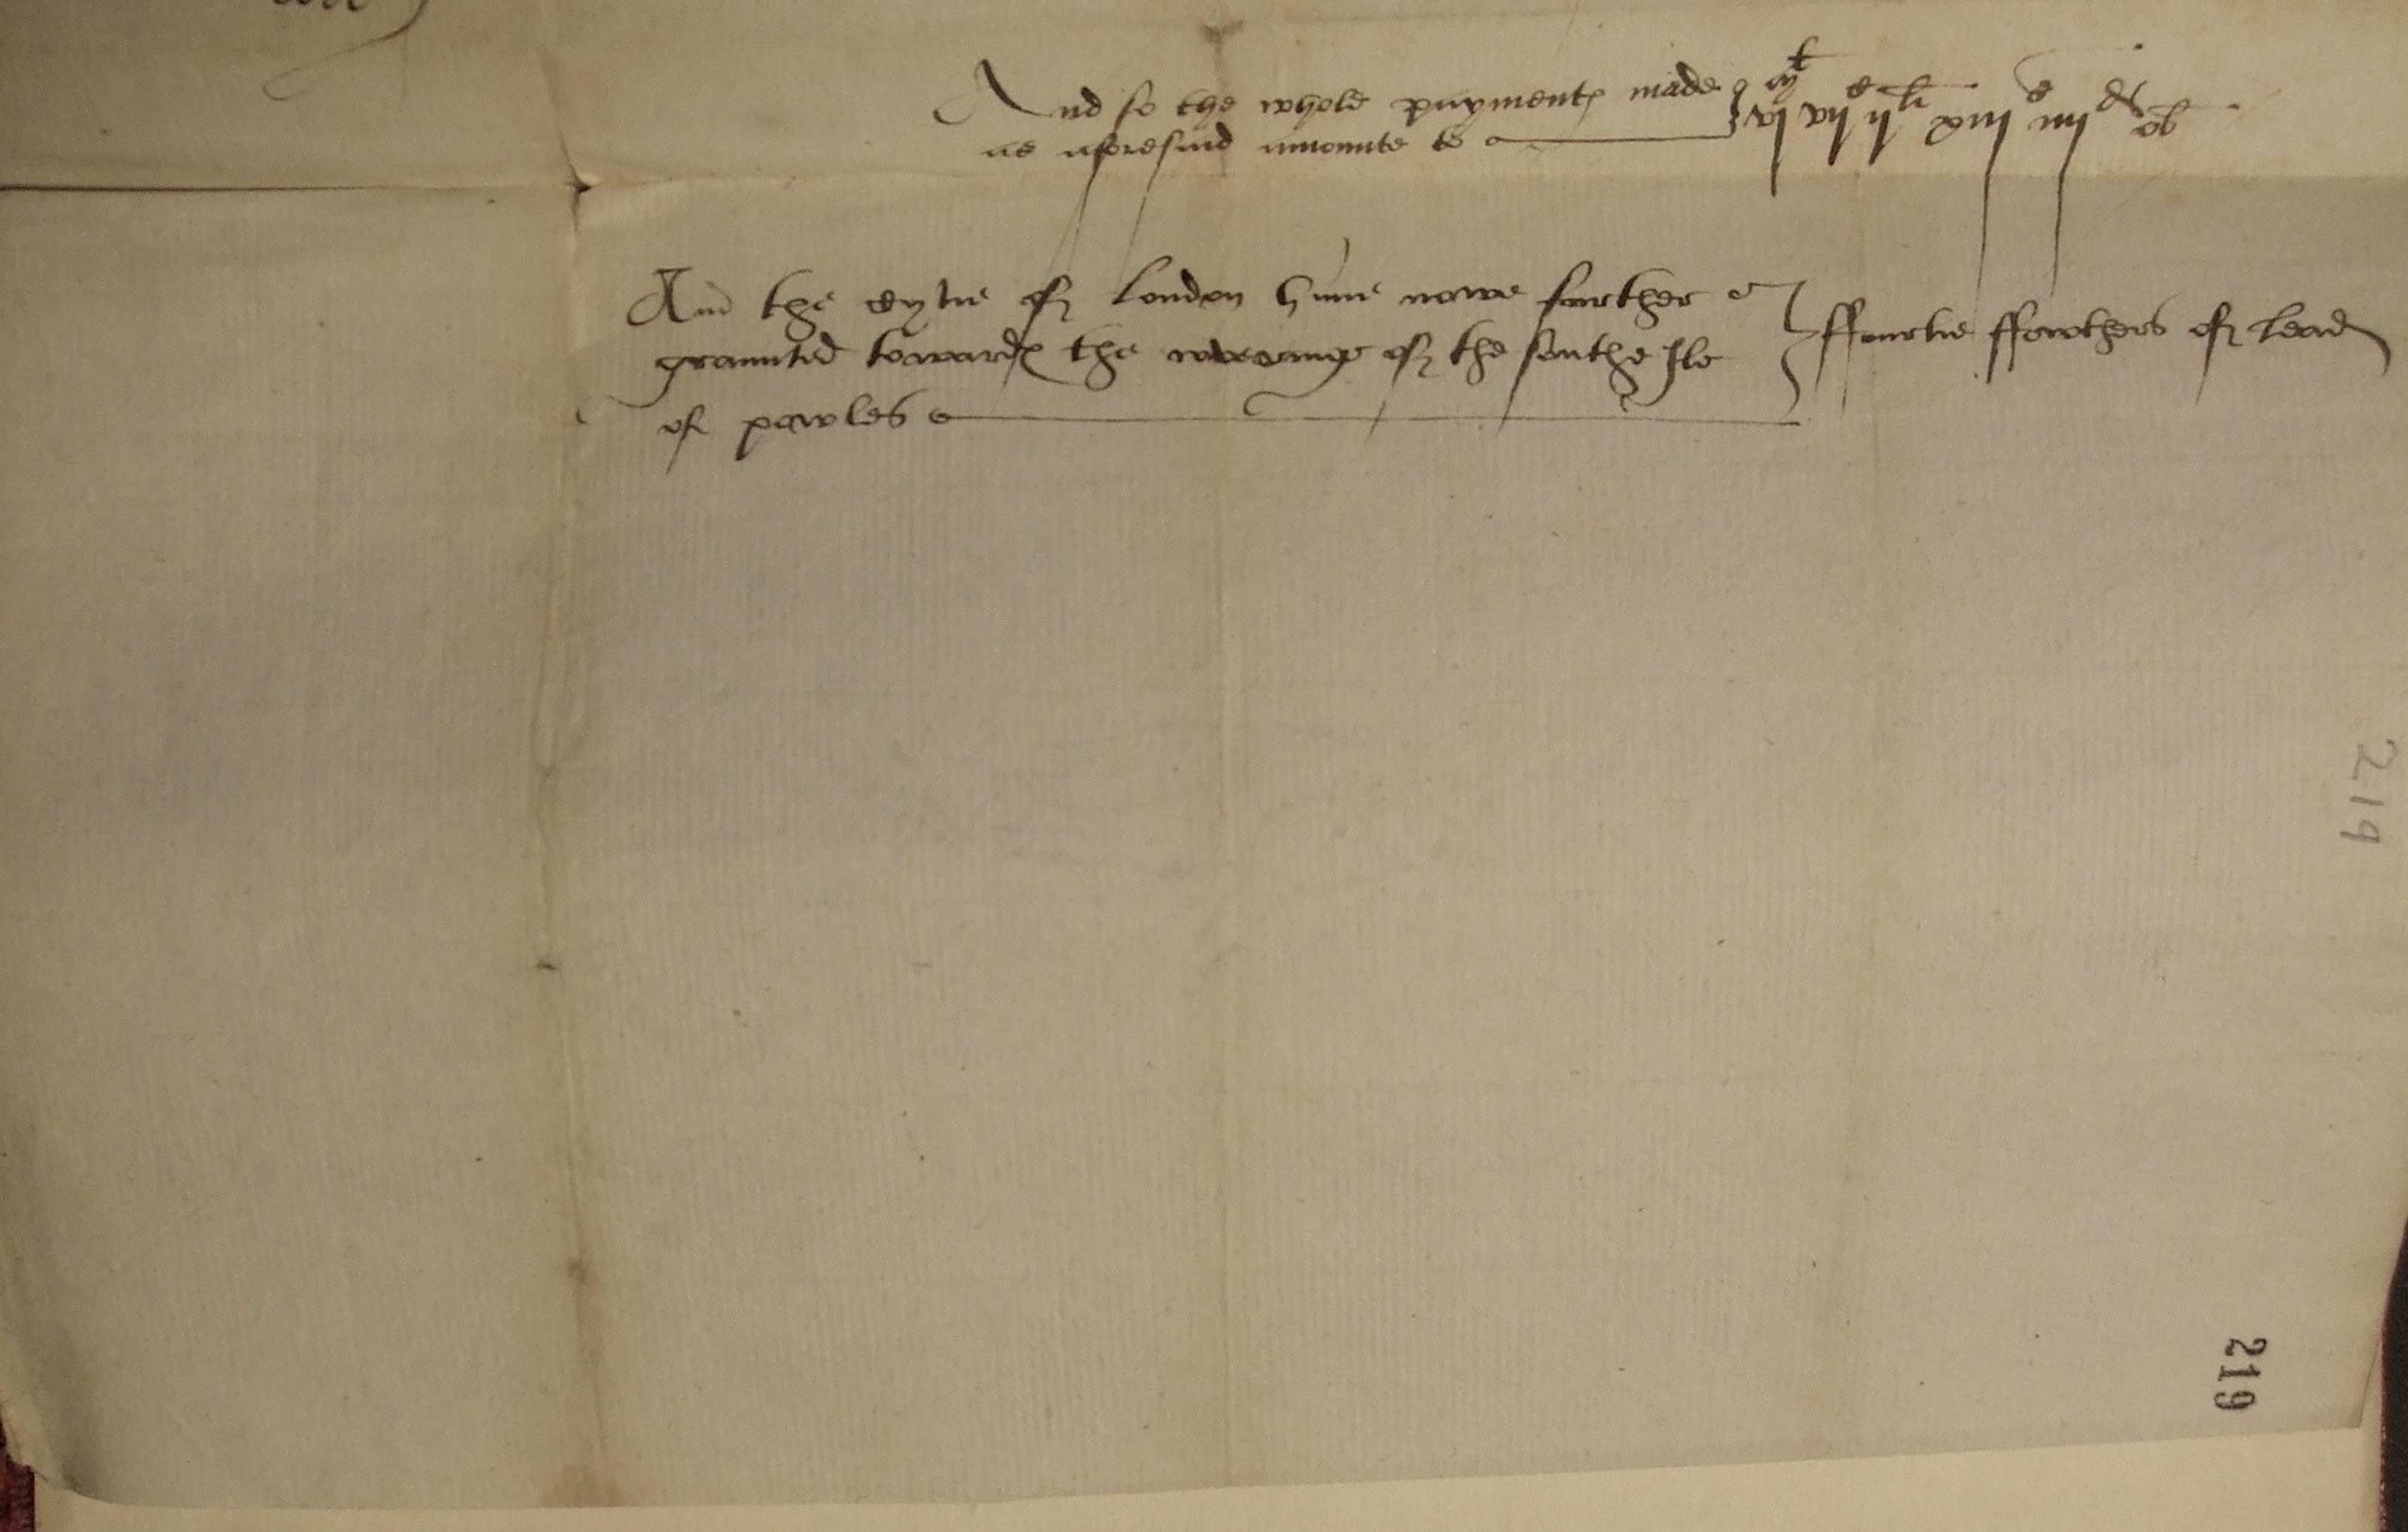 And so the whole paymentes made
as aforesaid amounte to
And the Cytie of London haue nowe further
graunted towardes the coveringe of the southe Ile
of powles
ffourtie ffowthers of Lead
219
219